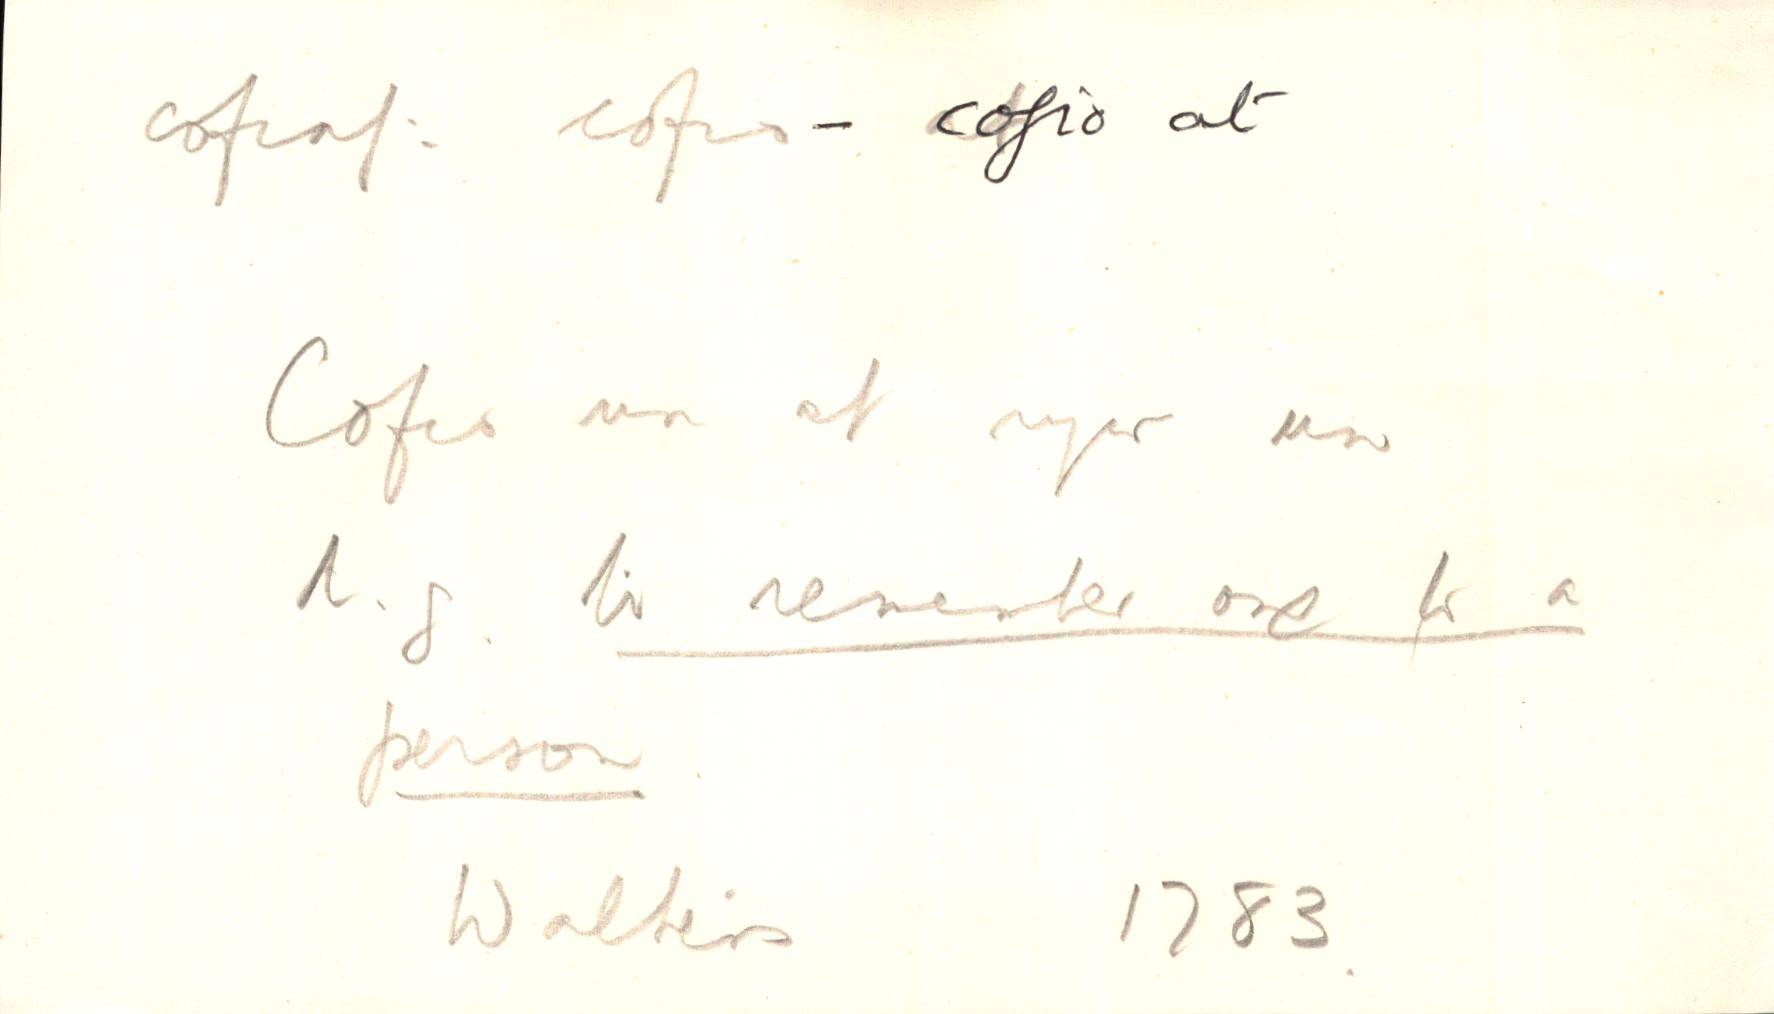 cofiaf: cofio - cofio at
Cofio un at ryw un
d.g. to remember one to a
person.
Walters 1783.